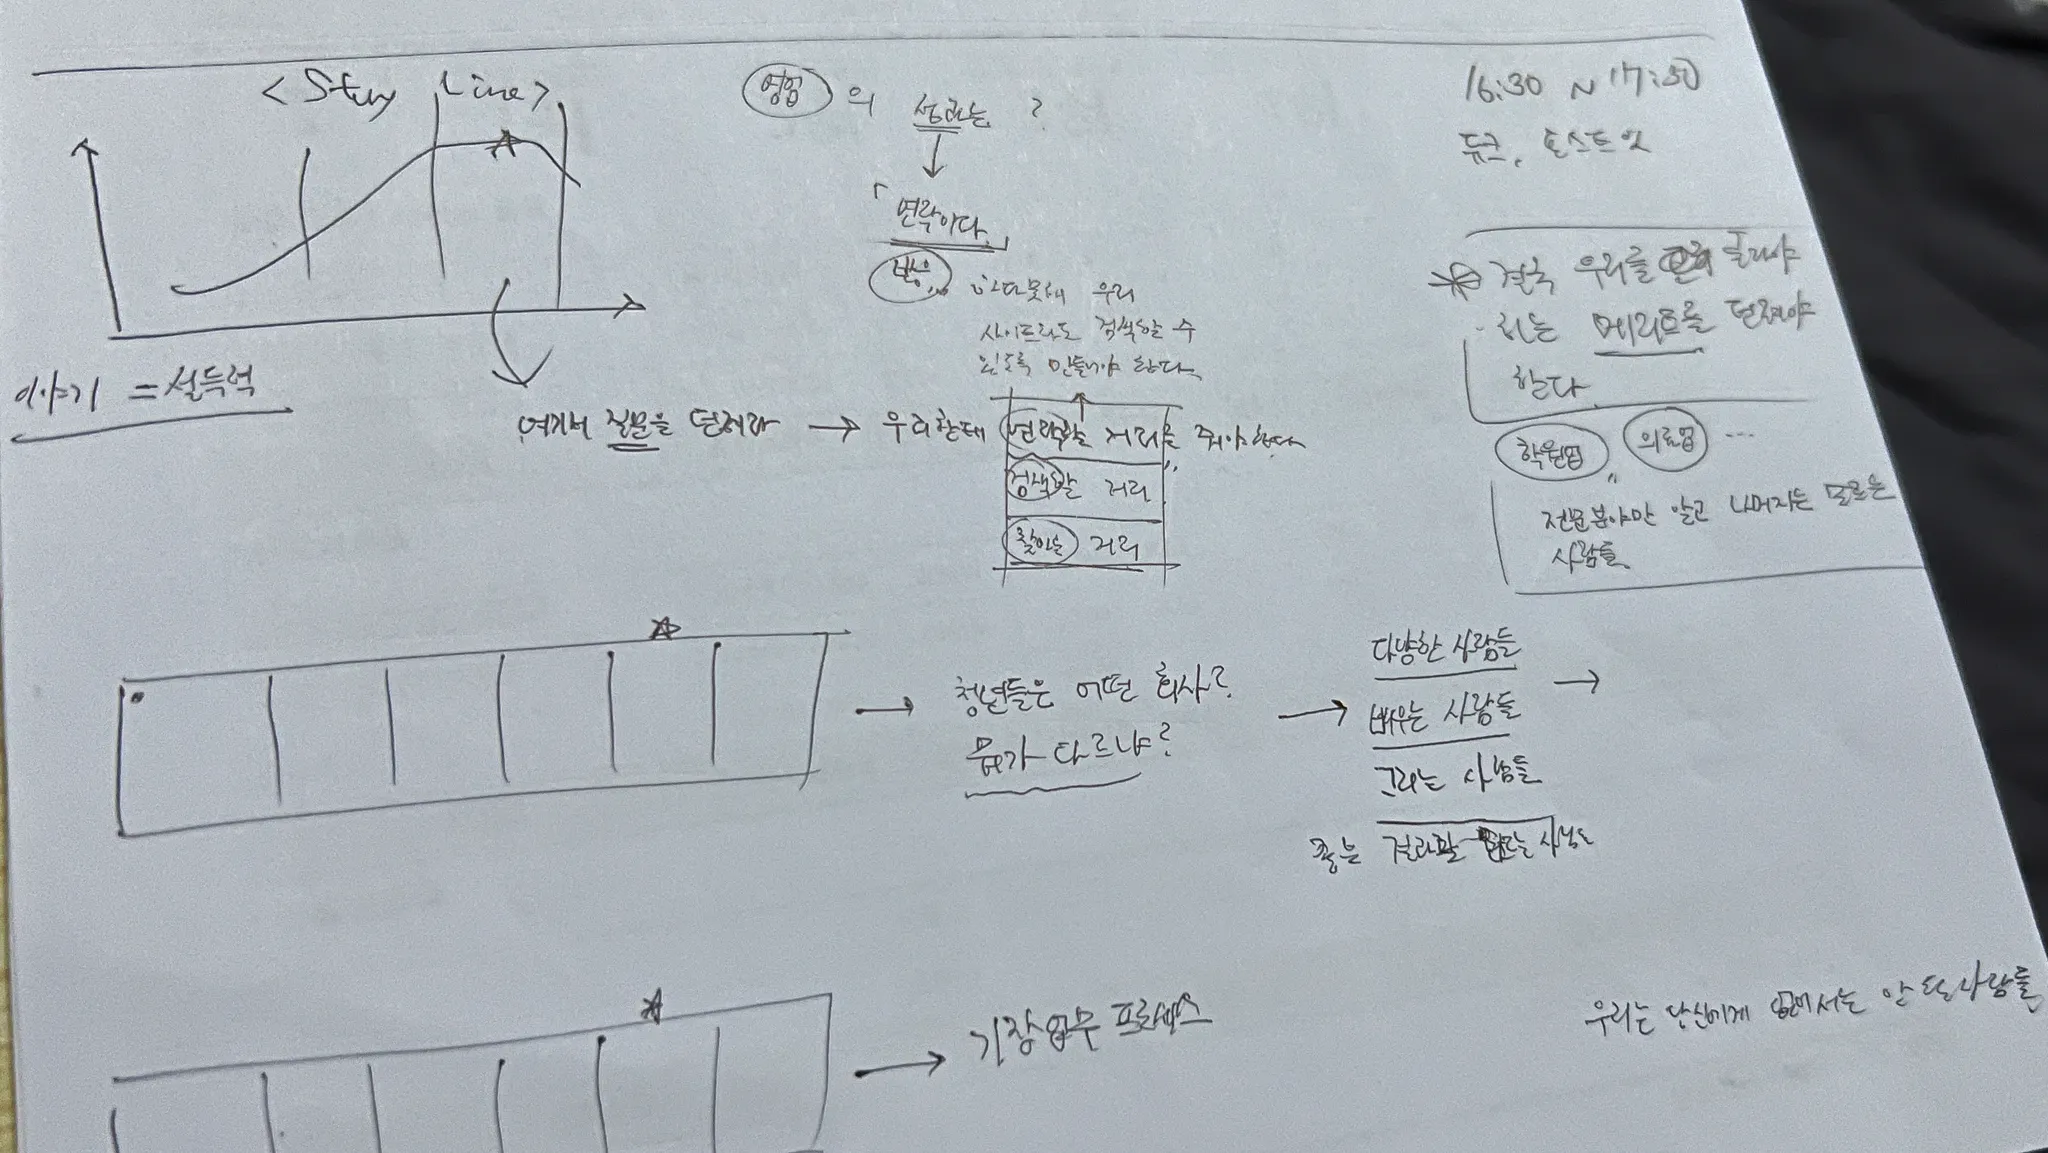 < Story Line >
이야기 = 설득력
영업 의 성과는 ?
「연락이다.」
반응,, 하다못해 우리
사이트라도 검색할 수
있도록 만들어야 한다.
여기서 질문을 던져라 → 우리한테 연락할 거리를 줘야 한다
검색할 거리
찾아볼 거리
16:30 ~ 17:30
포스트잇
결국 우리를 골라야
하는 메리트를 던져야
한다.
학원업,, 의료업 ...
전문분야만 알고 나머지는 모르는
사람들
→ 청년들은 어떤 회사?
뭐가 다르냐?
→ 다양한 사람들 →
배우는 사람들
그리는 사람들
좋은 결과를
→ 기장업무 프로세스
우리는 당신에게 안 사람들